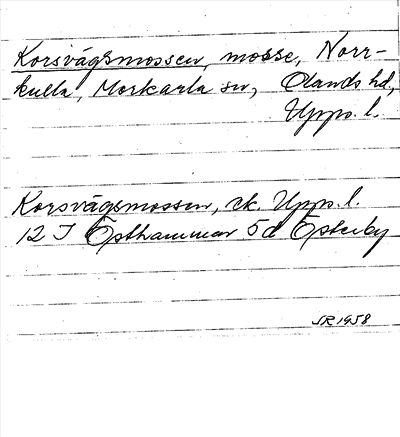 Korsvägsmossen, mosse, Norr-
kulla, Morkarla sn, Olands hd,
Upps. l.
Korsvägsmossen, ek. Upps. l.
12 I Östhammar 5d Österby
SR 1958